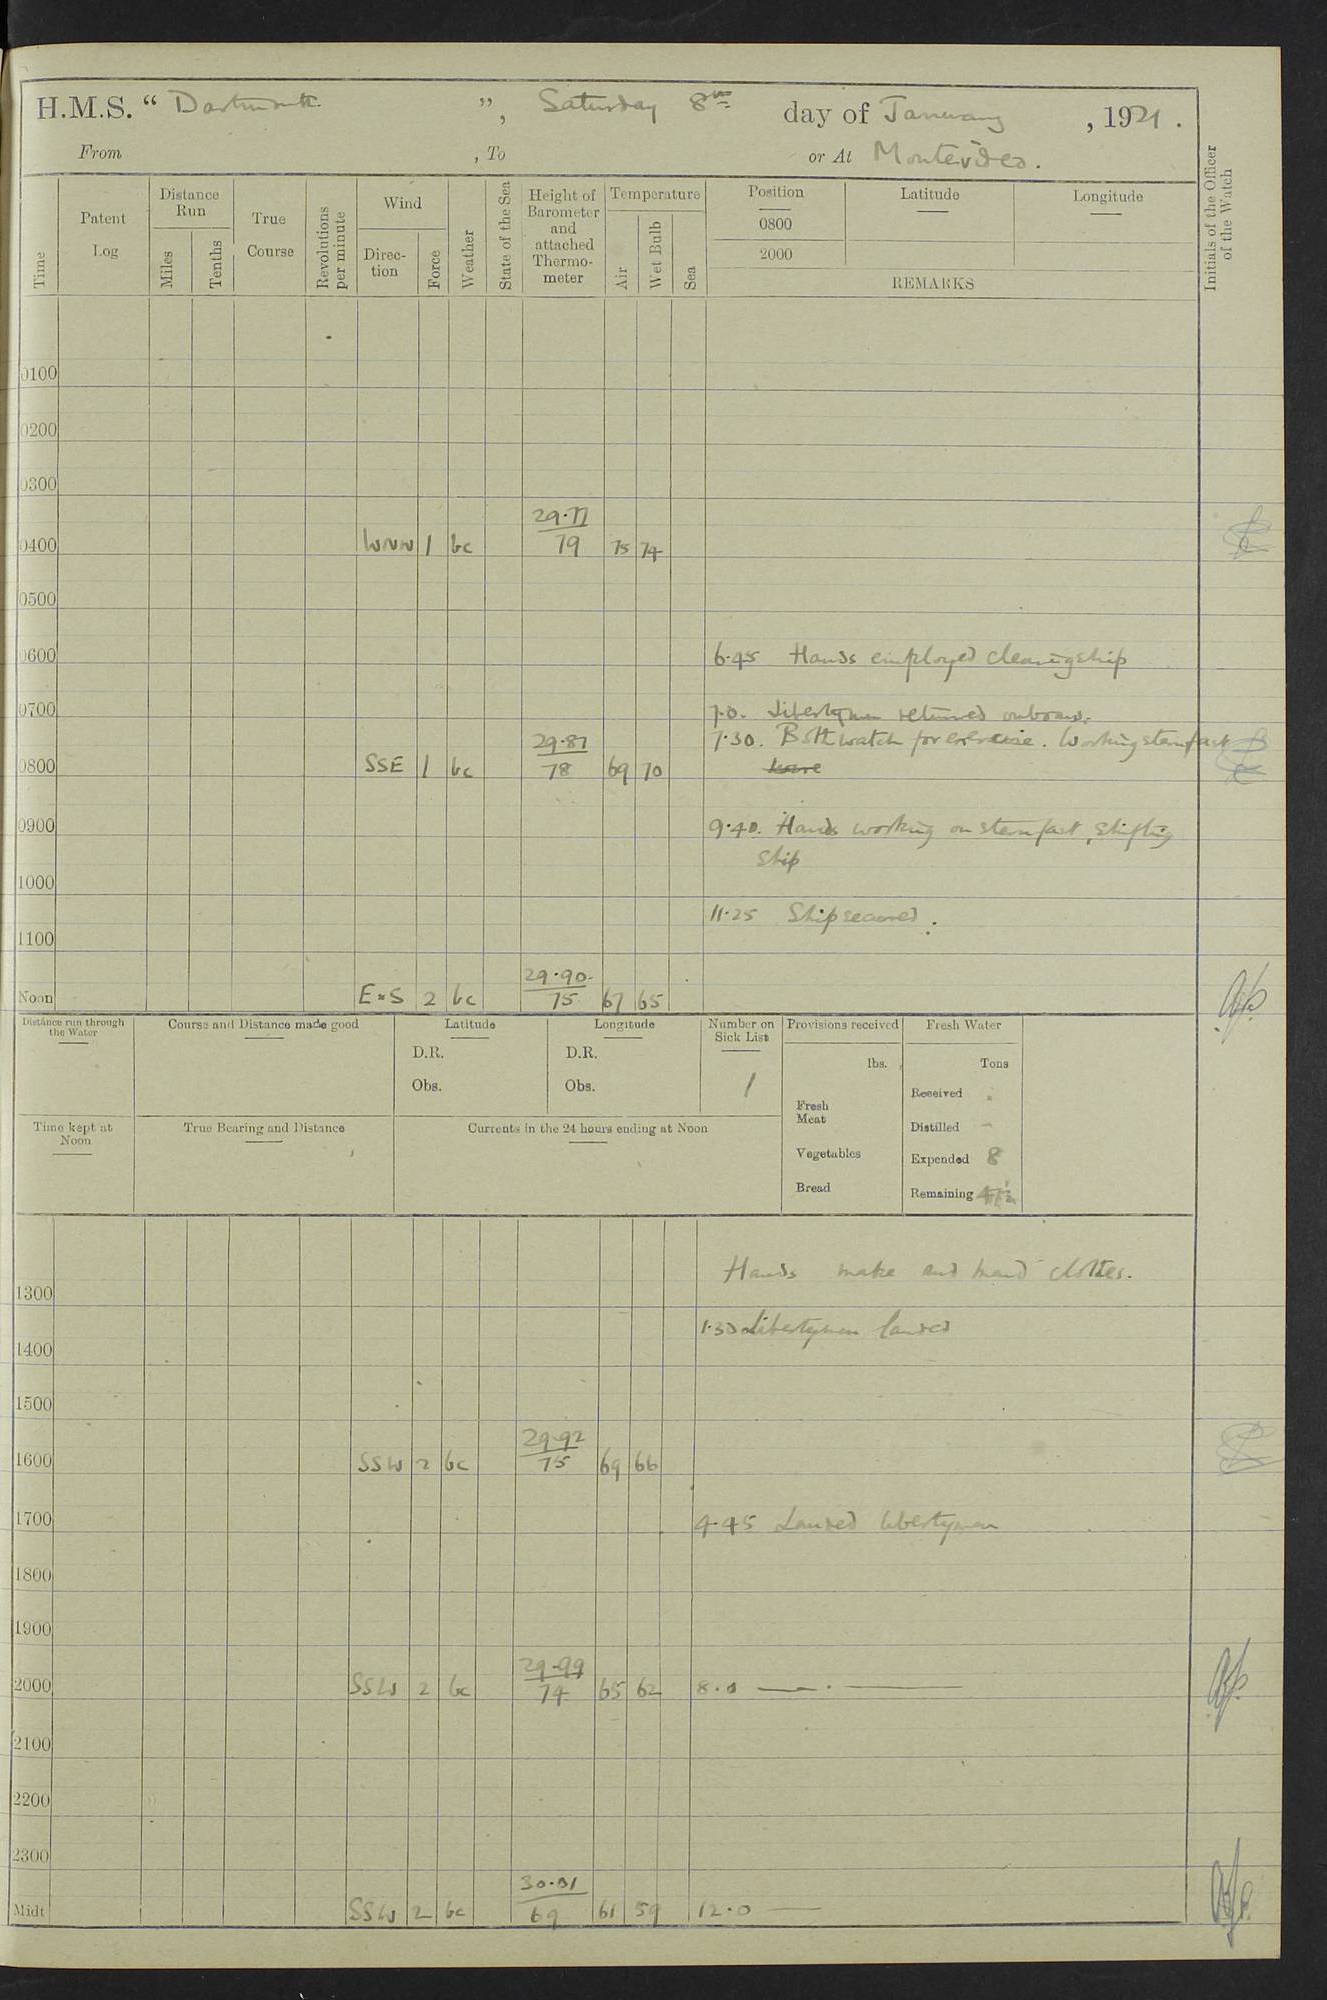 H.M.S. “ Dartmouth ”, Saturday 8th day of January , 1921 .
From , To or At Montevideo.
Time
Patent Log
Distance Run
Miles
Tenths
True Course
Revolutions per minute
Wind
Direction
Force
Weather
State of the Sea
Height of Barometer and attached Thermometer
Temperature
Air
Wet Bulb
Sea
Position Latitude Longitude
0800
2000
REMARKS
Initials of the Officer of the Watch
0100
0200
0300
29.77
0400 WNW 1 bc 79 75 74
0500
0600 6.45 Hands employed cleaning ship
0700 7.0. Libertymen returned onboard.
29.87 7.30. Both watch for exercise. Working sternfast
0800 SSE 1 bc 78 69 70 hawse
0900 9.40. Hands working on sternfast, shifting
ship
1000
11.25 Ship secured.
1100
29.90
Noon ExS 2 bc 75 67 65
Distance run through the Water
Course and Distance made good
Latitude
D.R.
Obs.
Longitude
D.R.
Obs.
Number on Sick List
1
Provisions received
lbs.
Fresh Meat
Vegetables
Bread
Fresh Water
Tons
Received
Distilled -
Expended 8
Remaining
Time kept at Noon
True Bearing and Distance
Currents in the 24 hours ending at Noon
Hands make and mend clothes.
1300
1.30 Libertymen landed
1400
1500
29.92
1600 SSW 2 bc 75 69 66
1700 4.45 Landed libertymen
1800
1900
29.99
2000 SSW 2 bc 74 65 62 8.0 — . —
2100
2200
2300
30.01
Midt SSW 2 bc 69 61 59 12.0 —